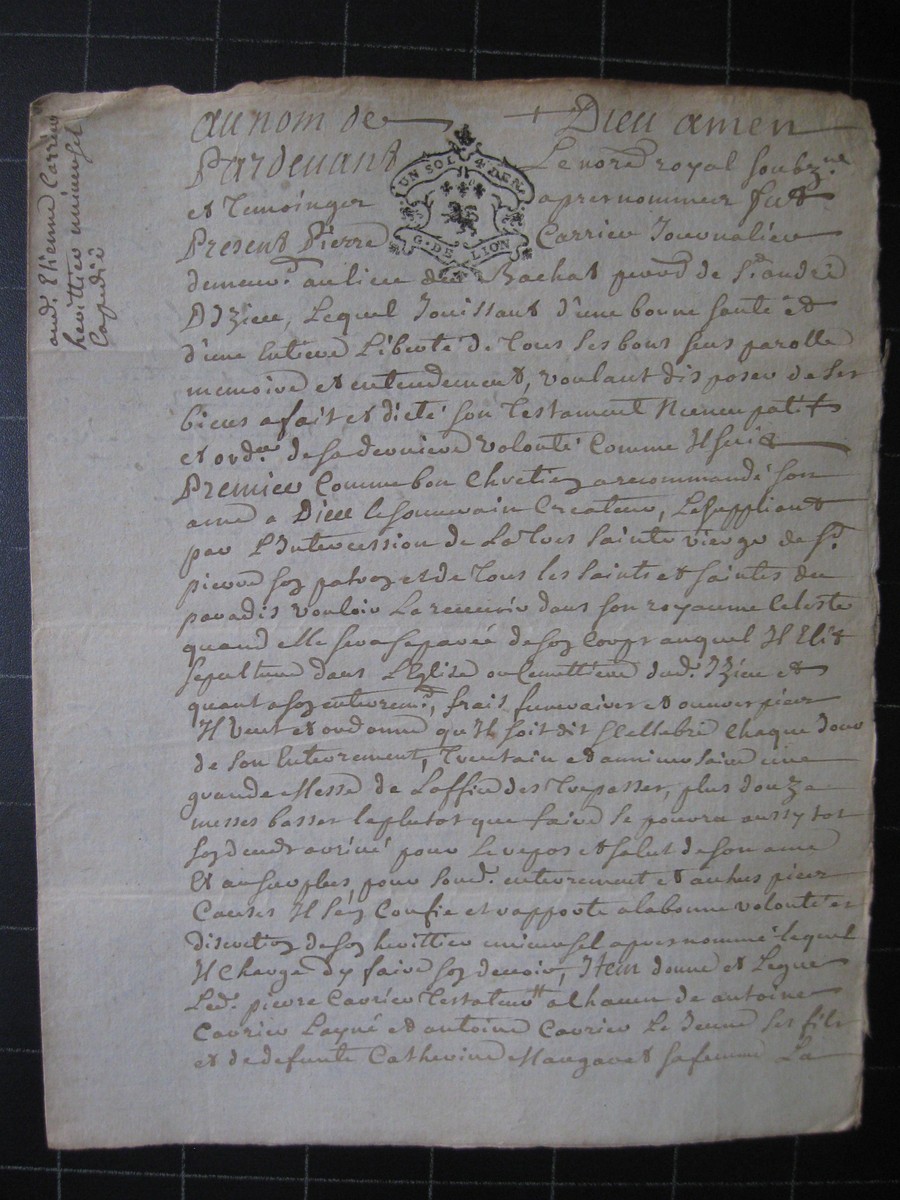 au nom de Dieu amen
Pardevant Le nore royal soubz.né
et Temoinger apres nommer fut
Present Pierre Carrier Journalier
demeurt. au lieu du Rachat parod de St. andré
D Izieu, Lequel Jouissant d'une bonne santé et
d'une Entiere Liberté de Tous ses bons sens parolle
memoire et entendement, voulant disposer de ser
biens a fait et dicté son Testament Nuncupatif
et ordre. de sa derniere volonté Comme H suit
Premier Comme bon Chretien a recommandé son
ame a Dieu le souverain Createur, Le suppliant
par L'Intercession de La Tres Sainte vierge de St.
pierre son patron et de Tous les saints et saintes du
paradis vouloir La recevoir dans son royaume Celeste
quand elle sera separée de son Corpr auquel H Elit
sepulture dans L'Eglise ou Cemettiere dud. Izieu et
quant a son enterremt., frais funeraires et œuvres pieer
H veut et ordonne qu'H soit dit & Cellebré Chaque Jour
de son Enterrement, Trentain et anniversaire une
grande Messe de Loffice des Trepasser, plus douze
messes basser le plutot que faire se pourra aussy tot
son deceds arrivé pour Le repos et salut de son ame
Et au surplus, pour sond. enterrement et autres pieer
Causes H s'en Confie et rapporte a la bonne volonté et
discretion de son herittier universel apres nommé lequel
H Charge d'y faire son devoir, Item donne et Legue
Led. pierre Carrier Testateur a Chacun de antoine
Carrier Layné et antoine Carrier Le Jeune ses fils
et de defunte Catherine Mangaret sa femme La
UN SOL 4 DEN
G. DE LION
oud. Etienne Carrier
herittier universel
Expedié